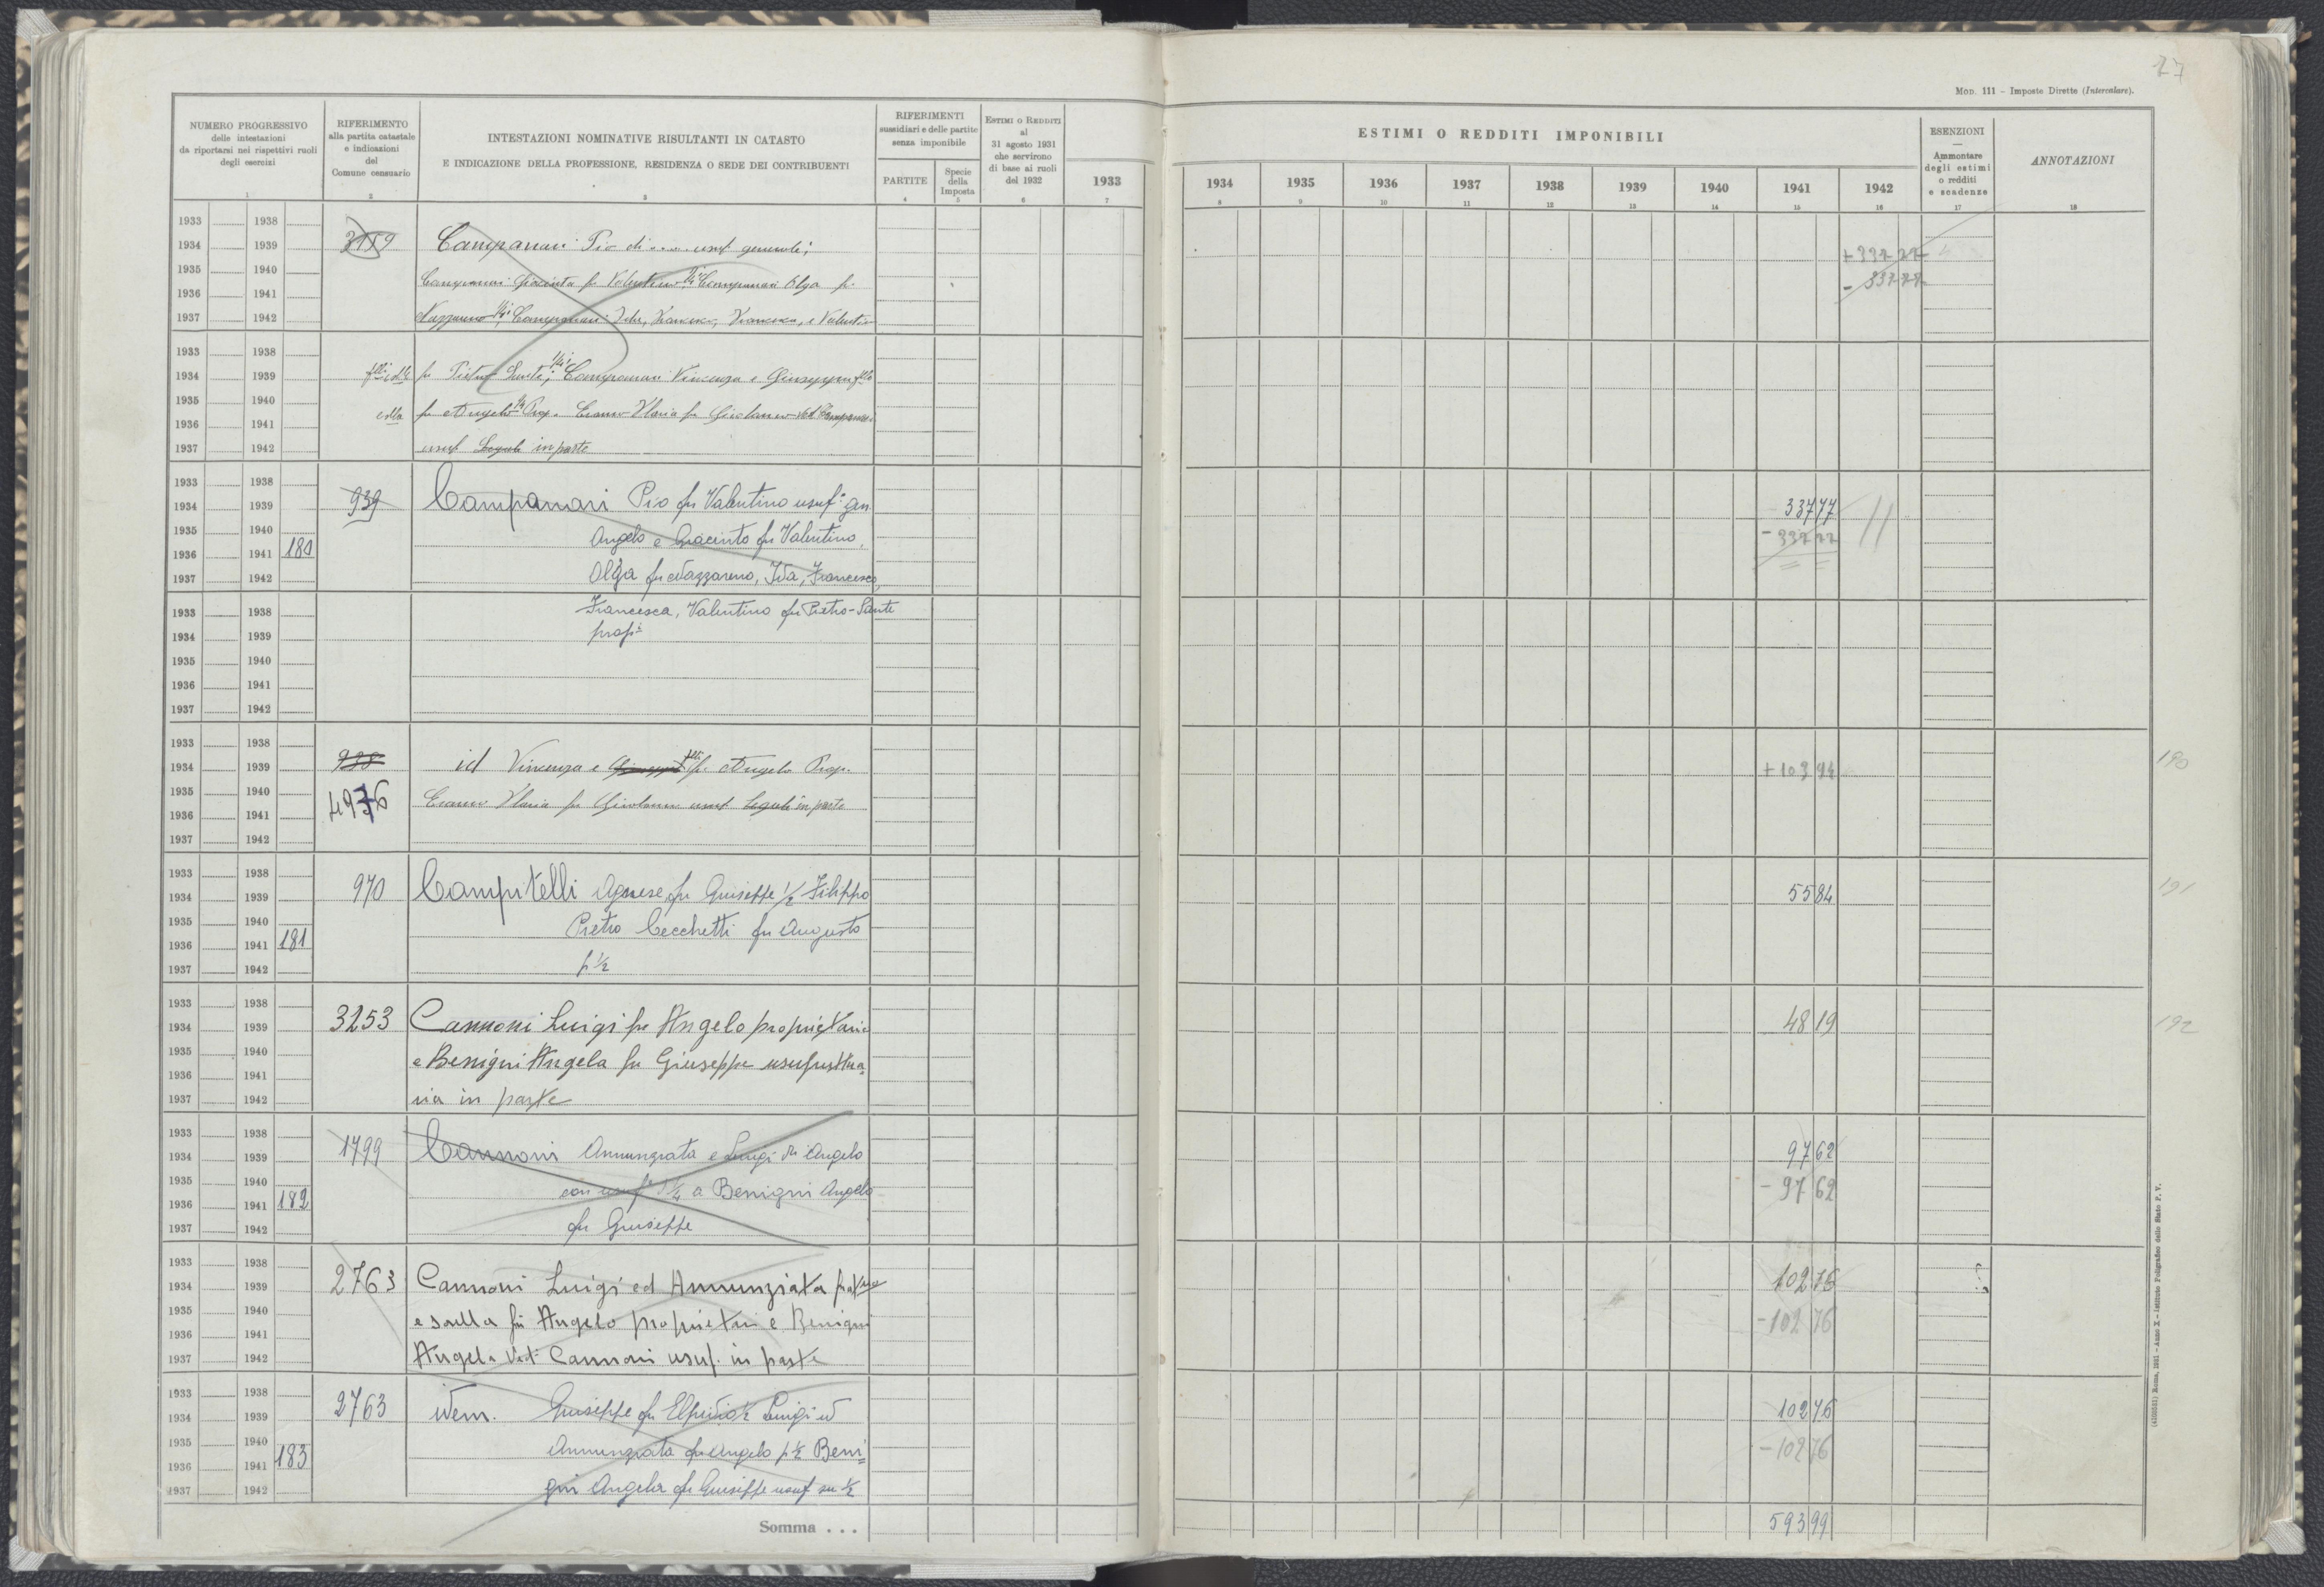 27
Mod. 111 - Imposte Dirette (Intercalare).
NUMERO PROGRESSIVO
delle intestazioni
da riportarsi nei rispettivi ruoli
degli esercizi
1
RIFERIMENTO
alla partita catastale
e indicazioni
del
Comune censuario
2
INTESTAZIONI NOMINATIVE RISULTANTI IN CATASTO
E INDICAZIONE DELLA PROFESSIONE, RESIDENZA O SEDE DEI CONTRIBUENTI
3
RIFERIMENTI
sussidiari e delle partite
senza imponibile
PARTITE
4
Specie
della
Imposta
5
ESTIMI O REDDITI
al
31 agosto 1931
che servirono
di base ai ruoli
del 1932
6
ESTIMI O REDDITI IMPONIBILI
1933 1934 1935 1936 1937 1938 1939 1940 1941 1942
7 8 9 10 11 12 13 14 15 16
ESENZIONI
Ammontare
degli estimi
o redditi
e scadenze
17
ANNOTAZIONI
18
1933 1938
1934 1939 Campanari Pio di .... usuf. generale;
+ 337 77
1935 1940 Campanari Giacinto fu Valentino 1/4; Campanari Olga fu
- 337 77
1936 1941
1937 1942 Nazzareno 1/4; Campanari Ida, Francesco, Francesca, e Valentino
1933 1938
1934 1939 f.lli e s.lle fu Pietro Sante; 1/4; Campanari Vincenza e Giuseppa
1935 1940
1936 1941 fu Angelo 1/4 Prop. Maria fu Girolamo ved. Campanari
1937 1942 usuf. Legale in parte
1933 1938
1934 1939 939 Campanari Pio fu Valentino usuf. gen. 337 77
1935 1940
1936 1941 180 Angelo e Giacinto fu Valentino, - 337 77
1937 1942 Olga fu Nazzareno, Ida, Francesco,
1933 1938 Francesca, Valentino fu Pietro-Sante
1934 1939 propi
1935 1940
1936 1941
1937 1942
1933 1938
1934 1939 938 id Vincenza e Giuseppa f.lli fu Angelo Prop. + 103 94 190
1935 1940
1936 1941 4976 Maria fu Girolamo usuf. Legale in parte
1937 1942
1933 1938
1934 1939 970 Campitelli Agnese fu Giuseppe 1/2 Filippo 55 84 191
1935 1940 Pietro Cecchetti fu Augusto
1936 1941 181
1937 1942 p 1/2
1933 1938
1934 1939 3253 Cannoni Luigi fu Angelo proprietario 48 19 192
1935 1940
1936 1941 e Benigni Angela fu Giuseppe usufruttua=
1937 1942 ria in parte
1933 1938
1934 1939 1799 Cannoni Annunziata e Luigi di Angelo 97 62
1935 1940
1936 1941 182 con usuf. 1/4 a Benigni Angela - 97 62
1937 1942 fu Giuseppe
1933 1938
1934 1939 2763 Cannoni Luigi ed Annunziata fratello 102 76
1935 1940 e sorella fu Angelo proprietari e Benigni
1936 1941 - 102 76
1937 1942 Angela Ved. Cannoni usuf. in parte
1933 1938
1934 1939 2763 idem. Giuseppe fu Elpidio 1/2 Luigi ed 102 76
1935 1940
1936 1941 183 Annunziata fu Angelo p 1/2 Beni= - 102 76
1937 1942 gni Angela fu Giuseppe usuf su 1/2
Somma . . . 593 99
Roma, 1931 - Anno X - Istituto Poligrafico dello Stato P. V.